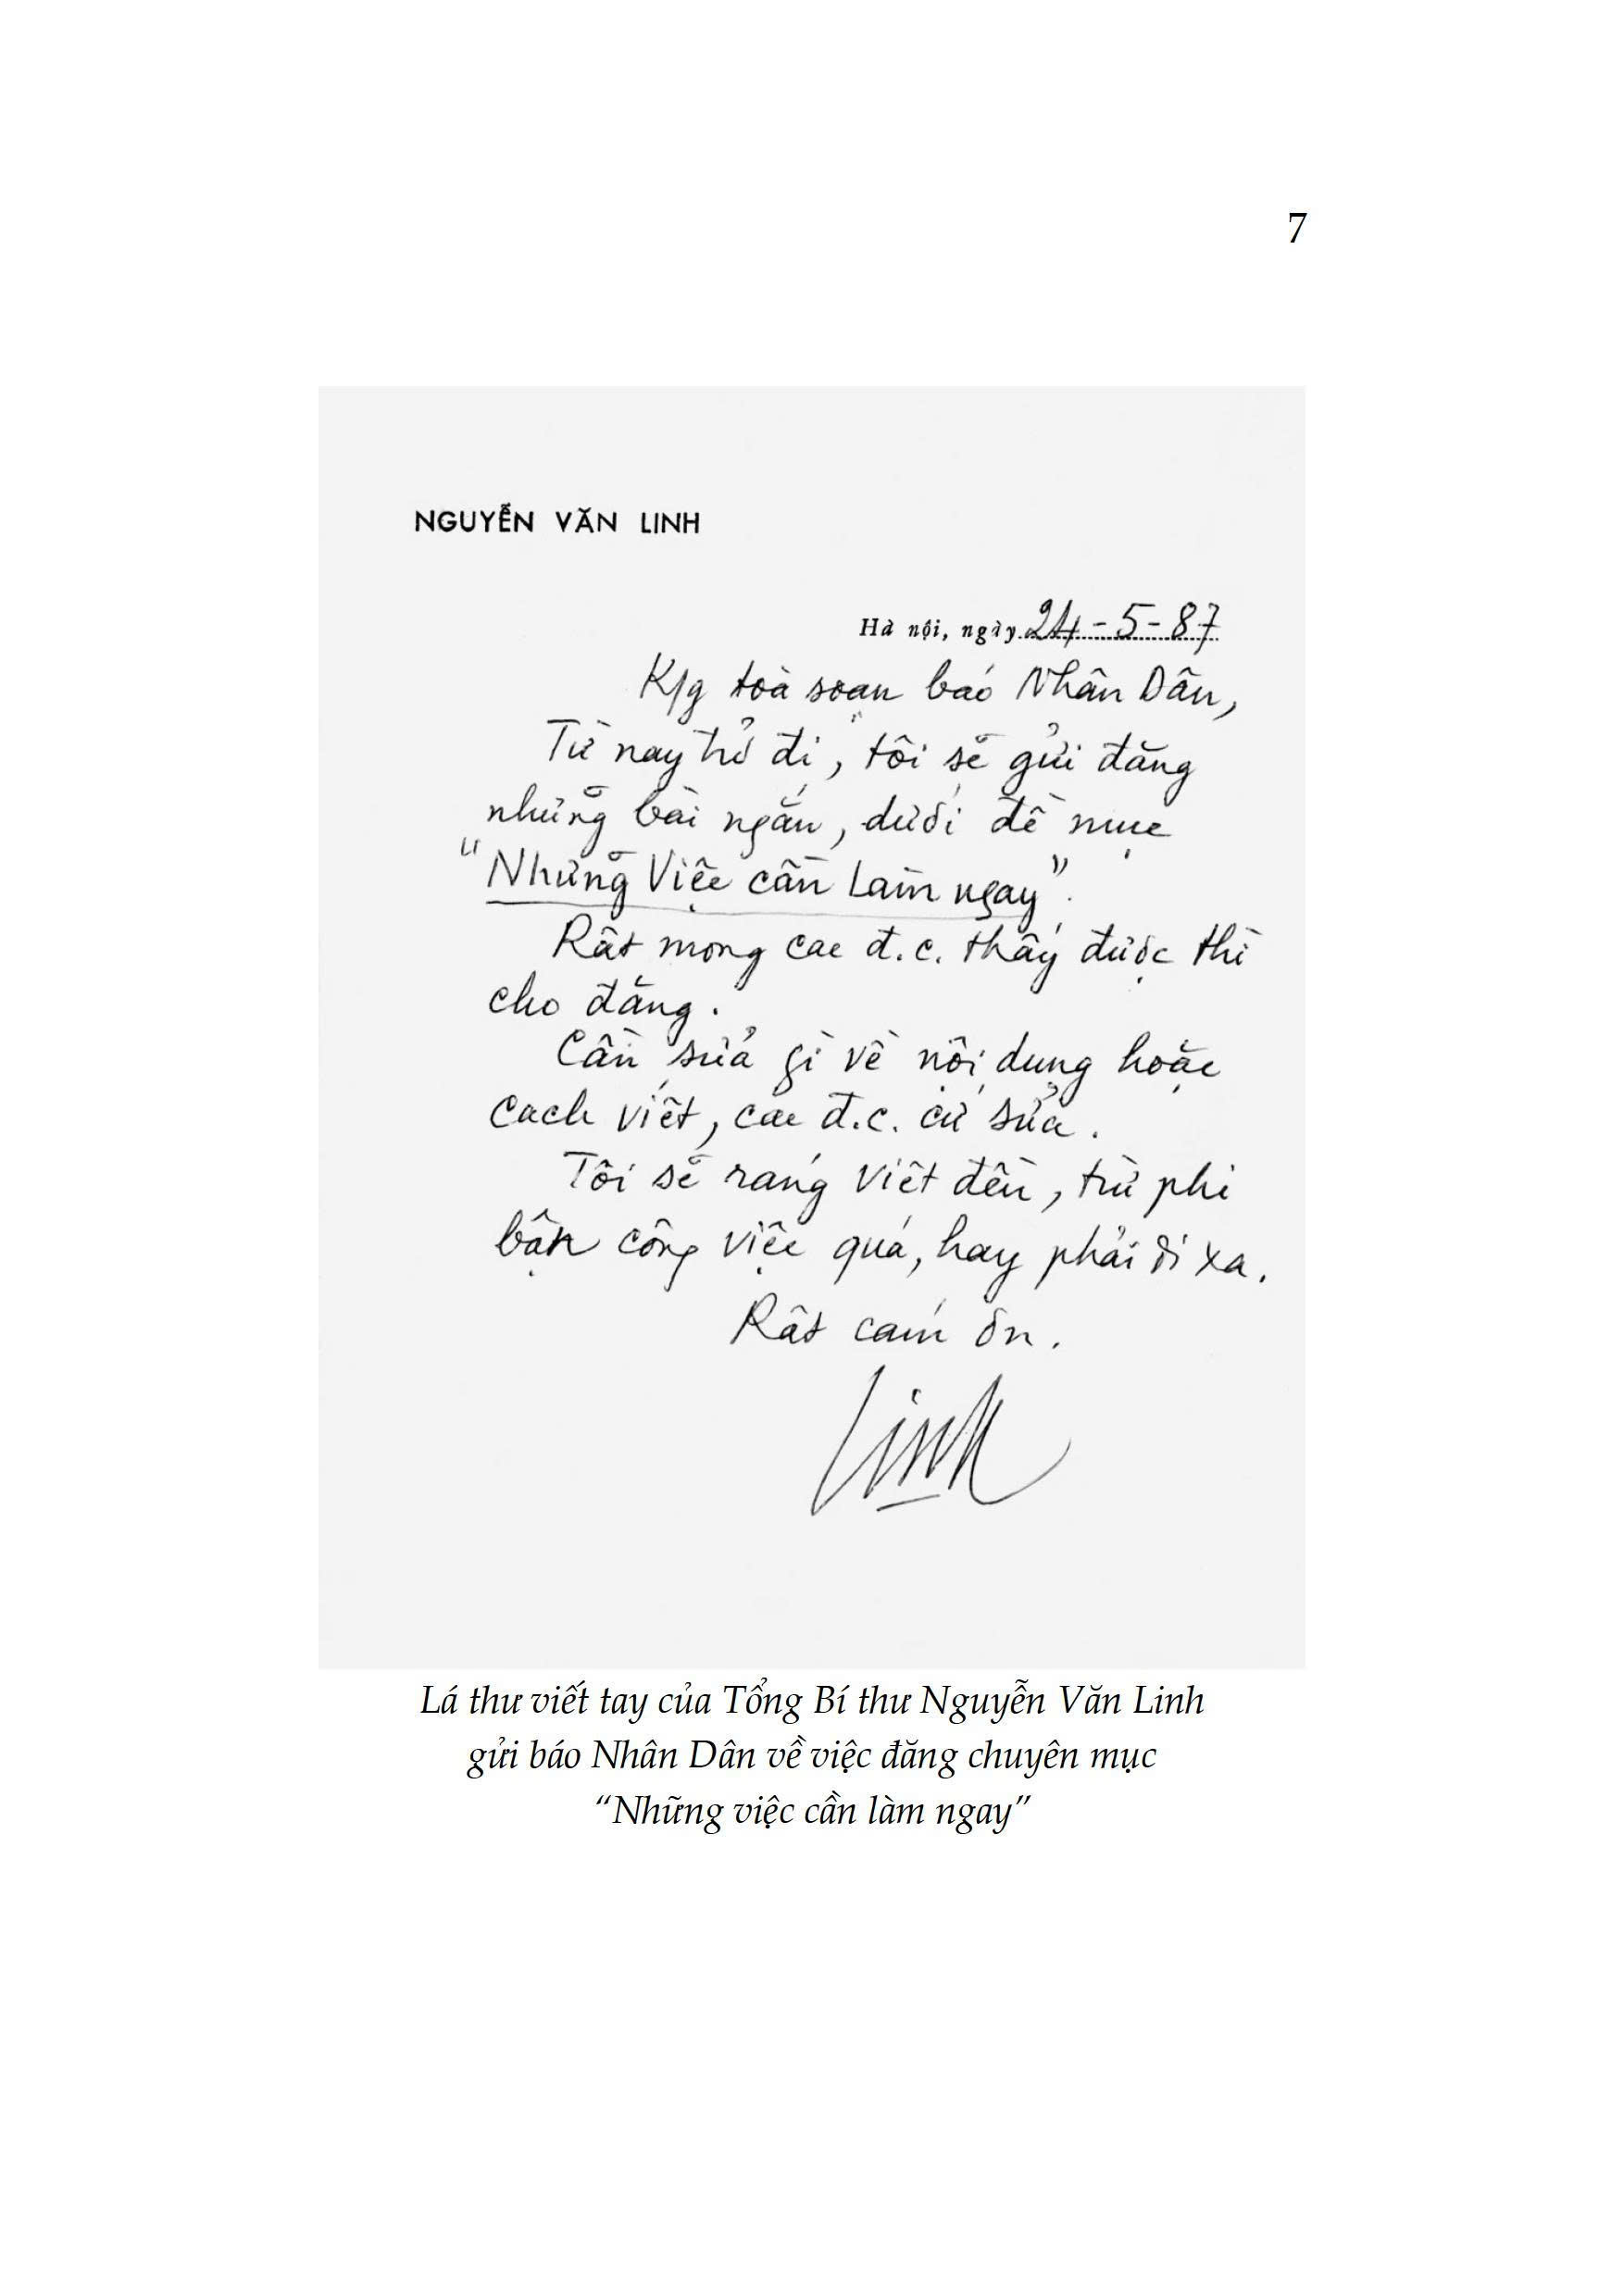 7
NGUYỄN VĂN LINH
Hà nội, ngày 24-5-87
K/g toà soạn báo Nhân Dân,
Từ nay trở đi, tôi sẽ gửi đăng
những bài ngắn, dưới đề mục
"Những Việc cần Làm ngay".
Rất mong các đ.c. thấy được thì
cho đăng.
Cần sửa gì về nội dung hoặc
cách viết, các đ.c. cứ sửa.
Tôi sẽ ráng viết đều, trừ phi
bận công việc quá, hay phải đi xa.
Rất cám ơn.
Linh
Lá thư viết tay của Tổng Bí thư Nguyễn Văn Linh
gửi báo Nhân Dân về việc đăng chuyên mục
“Những việc cần làm ngay”